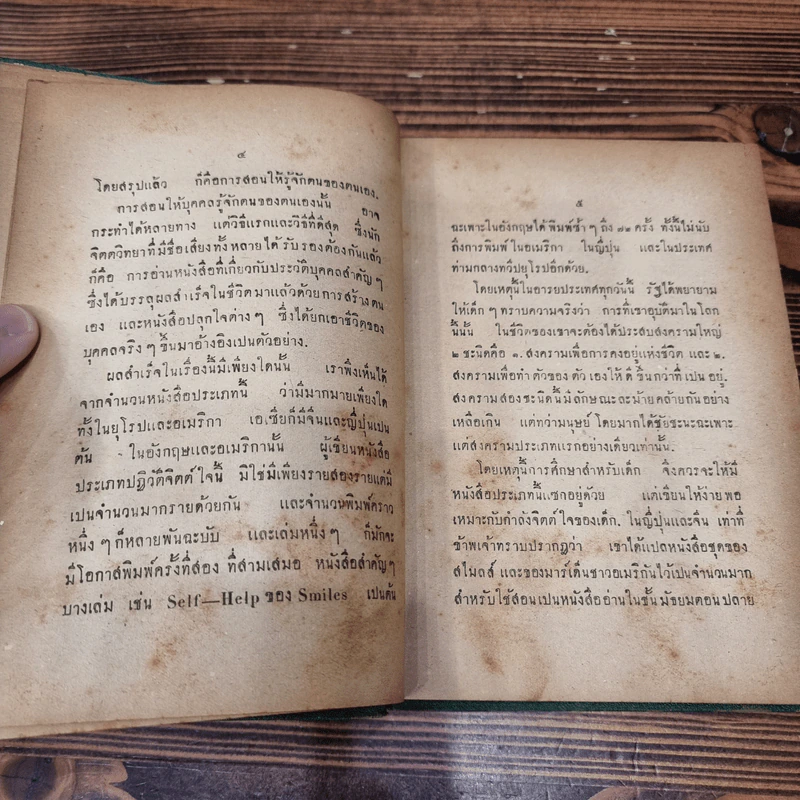 ๔
โดยสรุปแล้ว ก็คือการสอนให้รู้จักตนของตนเอง.
การสอนให้บุคคลรู้จักตนของตนเองนั้น อาจ
กระทำได้หลายทาง แต่วิธีแรกและวิธีที่ดีสุด ซึ่งนัก
จิตตวิทยาที่มีชื่อเสียงทั้งหลายได้รับรองต้องกันแล้ว
ก็คือ การอ่านหนังสือที่เกี่ยวกับประวัติบุคคลสำคัญๆ
ซึ่งได้บรรลุผลสำเร็จในชีวิตมาแล้วด้วยการสร้างตน
เอง และหนังสือปลุกใจต่างๆ ซึ่งได้ยกเอาชีวิตของ
บุคคลจริงๆ ขึ้นมาอ้างอิงเป็นตัวอย่าง.
ผลสำเร็จในเรื่องนี้มีเพียงใดนั้น เราพึงเห็นได้
จากจำนวนหนังสือประเภทนี้ ว่ามีมากมายเพียงใด
ทั้งในยุโรปและอเมริกา เอเซียก็มีจีนและญี่ปุ่นเป็น
ต้น ในอังกฤษและอเมริกานั้น ผู้เขียนหนังสือ
ประเภทปฏิวัติจิตต์ใจนี้ มิใช่มีเพียงรายสองรายแต่มี
เป็นจำนวนมากรายด้วยกัน และจำนวนพิมพ์คราว
หนึ่งๆ ก็หลายพันฉะบับ และเล่มหนึ่งๆ ก็มักจะ
มีโอกาสพิมพ์ครั้งที่สอง ที่สามเสมอ หนังสือสำคัญๆ
บางเล่ม เช่น Self—Help ของ Smiles เป็นต้น
๕
ฉะเพาะในอังกฤษได้พิมพ์ซ้ำๆ ถึง ๗๒ ครั้ง ทั้งนี้ไม่นับ
ถึงการพิมพ์ในอเมริกา ในญี่ปุ่น และในประเทศ
ท่ามกลางทวีปยุโรปอีกด้วย.
โดยเหตุนี้ในอารยประเทศทุกวันนี้ รัฐได้พยายาม
ให้เด็กๆ ทราบความจริงว่า การที่เขาอุบัติมาในโลก
นี้นั้น ในชีวิตของเขาจะต้องได้ประสบสงครามใหญ่
๒ ชะนิดคือ ๑. สงครามเพื่อการคงอยู่แห่งชีวิต และ ๒.
สงครามเพื่อทำตัวของตัวเองให้ดีขึ้นกว่าที่เป็นอยู่.
สงครามสองชะนิดนี้มีลักษณะละม้ายคล้ายกันอย่าง
เหลือเกิน แต่ทว่ามนุษย์โดยมากได้ชัยชะนะฉะเพาะ
แต่สงครามประเภทแรกอย่างเดียวเท่านั้น.
โดยเหตุนี้การศึกษาสำหรับเด็ก จึงควรจะให้มี
หนังสือประเภทนี้แซกอยู่ด้วย แต่เขียนให้ง่ายพอ
เหมาะกับกำลังจิตต์ใจของเด็ก. ในญี่ปุ่นและจีน เท่าที่
ข้าพเจ้าทราบปรากฏว่า เขาได้แปลหนังสือชุดของ
สไมลส์ และของมาร์เด็นชาวอเมริกันไว้เป็นจำนวนมาก
สำหรับใช้สอนเป็นหนังสืออ่านในชั้นมัธยมตอนปลาย